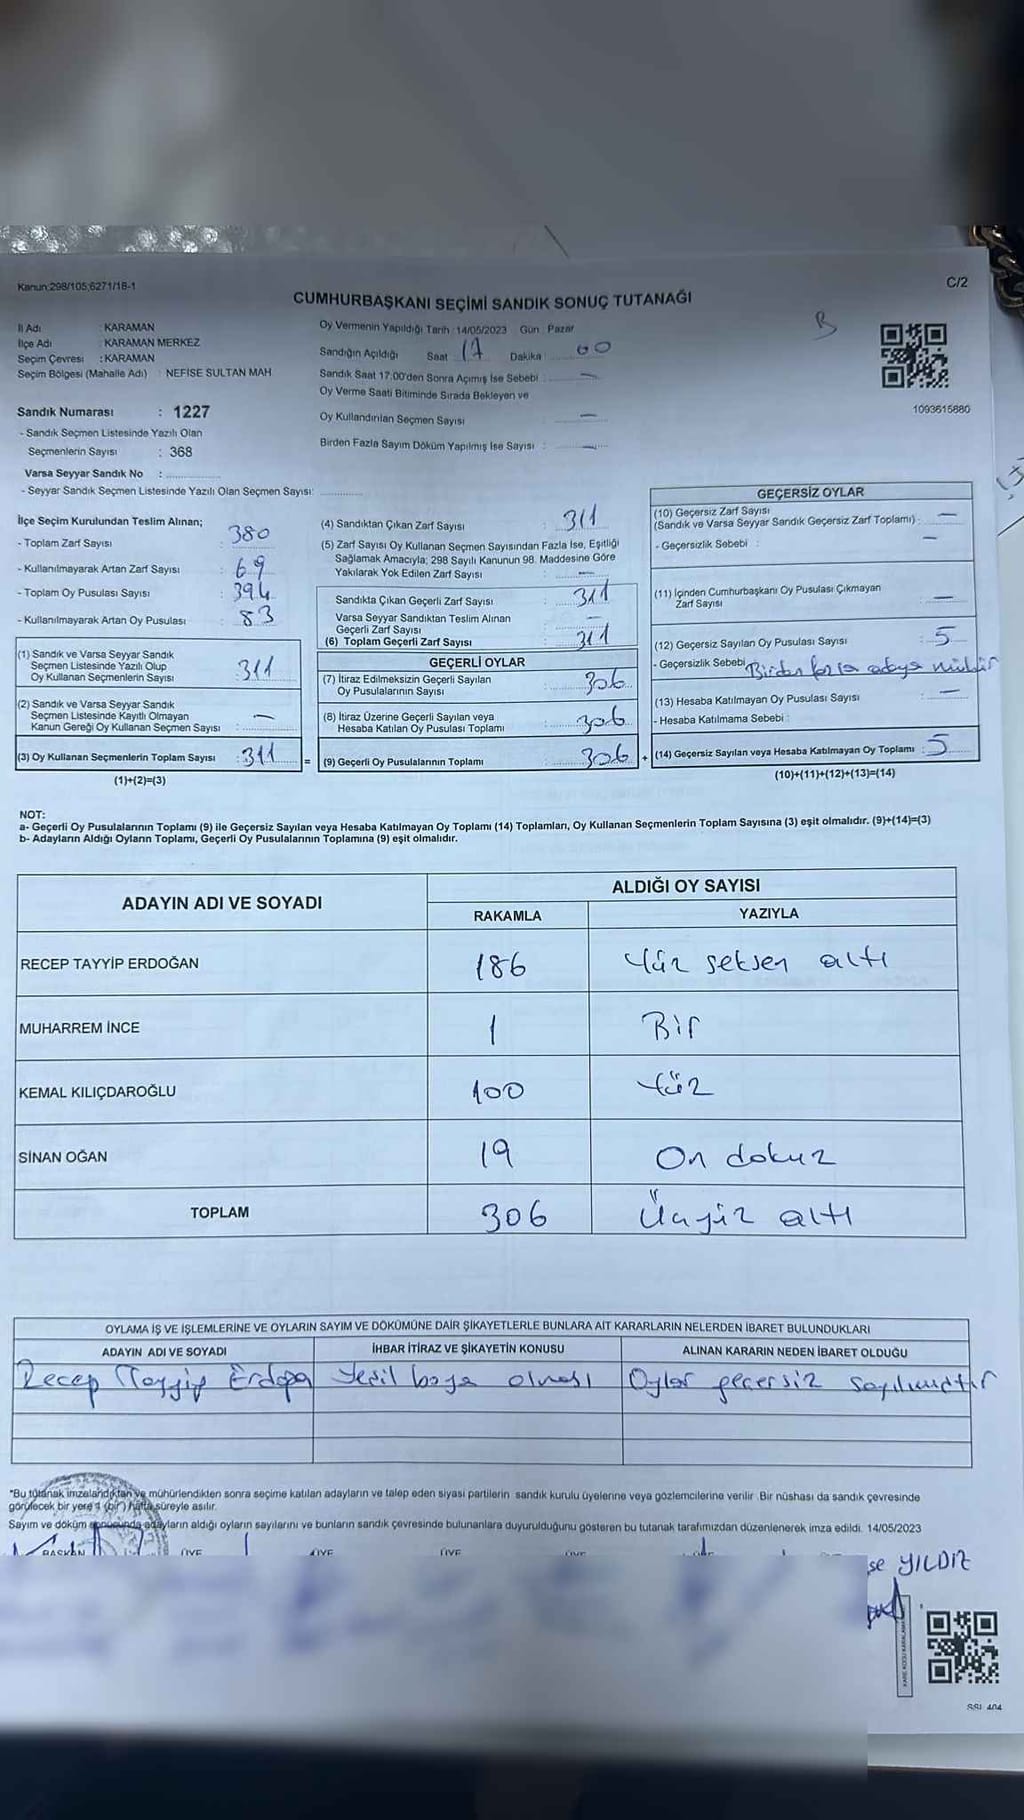 Kanun;298/105;6271/18-1
C/2
CUMHURBAŞKANI SEÇİMİ SANDIK SONUÇ TUTANAĞI
B
İl Adı : KARAMAN
İlçe Adı : KARAMAN MERKEZ
Seçim Çevresi : KARAMAN
Seçim Bölgesi (Mahalle Adı) : NEFİSE SULTAN MAH
Oy Vermenin Yapıldığı Tarih :14/05/2023 Gün : Pazar
Sandığın Açıldığı Saat 17 Dakika : 00
Sandık Saat 17:00'den Sonra Açımış İse Sebebi : —
Oy Verme Saati Bitiminde Sırada Bekleyen ve
Oy Kullandırılan Seçmen Sayısı —
Birden Fazla Sayım Döküm Yapılmış İse Sayısı : —
1093615880
Sandık Numarası : 1227
- Sandık Seçmen Listesinde Yazılı Olan
Seçmenlerin Sayısı : 368
Varsa Seyyar Sandık No :
- Seyyar Sandık Seçmen Listesinde Yazılı Olan Seçmen Sayısı:
İlçe Seçim Kurulundan Teslim Alınan;
- Toplam Zarf Sayısı : 380
- Kullanılmayarak Artan Zarf Sayısı : 69
- Toplam Oy Pusulası Sayısı : 394
- Kullanılmayarak Artan Oy Pusulası : 83
(1) Sandık ve Varsa Seyyar Sandık
Seçmen Listesinde Yazılı Olup
Oy Kullanan Seçmenlerin Sayısı : 311
(2) Sandık ve Varsa Seyyar Sandık
Seçmen Listesinde Kayıtlı Olmayan
Kanun Gereği Oy Kullanan Seçmen Sayısı : —
(3) Oy Kullanan Seçmenlerin Toplam Sayısı : 311 =
(1)+(2)=(3)
(4) Sandıktan Çıkan Zarf Sayısı : 311
(5) Zarf Sayısı Oy Kullanan Seçmen Sayısından Fazla İse, Eşitliği
Sağlamak Amacıyla; 298 Sayılı Kanunun 98. Maddesine Göre
Yakılarak Yok Edilen Zarf Sayısı : —
Sandıkta Çıkan Geçerli Zarf Sayısı : 311
Varsa Seyyar Sandıktan Teslim Alınan
Geçerli Zarf Sayısı : —
(6) Toplam Geçerli Zarf Sayısı : 311
GEÇERLİ OYLAR
(7) İtiraz Edilmeksizin Geçerli Sayılan
Oy Pusulalarının Sayısı : 306
(8) İtiraz Üzerine Geçerli Sayılan veya
Hesaba Katılan Oy Pusulası Toplamı : 306
(9) Geçerli Oy Pusulalarının Toplamı : 306 +
GEÇERSİZ OYLAR
(10) Geçersiz Zarf Sayısı
(Sandık ve Varsa Seyyar Sandık Geçersiz Zarf Toplamı) : —
- Geçersizlik Sebebi : —
(11) İçinden Cumhurbaşkanı Oy Pusulası Çıkmayan
Zarf Sayısı —
(12) Geçersiz Sayılan Oy Pusulası Sayısı : 5
- Geçersizlik Sebebi Birden fazla adaya mühür
(13) Hesaba Katılmayan Oy Pusulası Sayısı : —
- Hesaba Katılmama Sebebi :
(14) Geçersiz Sayılan veya Hesaba Katılmayan Oy Toplamı : 5
(10)+(11)+(12)+(13)=(14)
NOT:
a- Geçerli Oy Pusulalarının Toplamı (9) ile Geçersiz Sayılan veya Hesaba Katılmayan Oy Toplamı (14) Toplamları, Oy Kullanan Seçmenlerin Toplam Sayısına (3) eşit olmalıdır. (9)+(14)=(3)
b- Adayların Aldığı Oyların Toplamı, Geçerli Oy Pusulalarının Toplamına (9) eşit olmalıdır.
ADAYIN ADI VE SOYADI
ALDIĞI OY SAYISI
RAKAMLA YAZIYLA
RECEP TAYYİP ERDOĞAN 186 Yüz seksen altı
MUHARREM İNCE 1 Bir
KEMAL KILIÇDAROĞLU 100 Yüz
SİNAN OĞAN 19 On dokuz
TOPLAM 306 Üçyüz altı
OYLAMA İŞ VE İŞLEMLERİNE VE OYLARIN SAYIM VE DÖKÜMÜNE DAİR ŞİKAYETLERLE BUNLARA AİT KARARLARIN NELERDEN İBARET BULUNDUKLARI
ADAYIN ADI VE SOYADI İHBAR İTİRAZ VE ŞİKAYETİN KONUSU ALINAN KARARIN NEDEN İBARET OLDUĞU
Recep Tayyip Erdoğan Yeşil boya olması Oylar geçersiz sayılmıştır
"Bu tutanak imzalandıktan ve mühürlendikten sonra seçime katılan adayların ve talep eden siyasi partilerin sandık kurulu üyelerine veya gözlemcilerine verilir .Bir nüshası da sandık çevresinde
görülecek bir yere 1 (bir) hafta süreyle asılır.
Sayım ve döküm sonucunda adayların aldığı oyların sayılarını ve bunların sandık çevresinde bulunanlara duyurulduğunu gösteren bu tutanak tarafımızdan düzenlenerek imza edildi. 14/05/2023
BAŞKAN ÜYE ÜYE ÜYE ÜYE
se YILDIZ